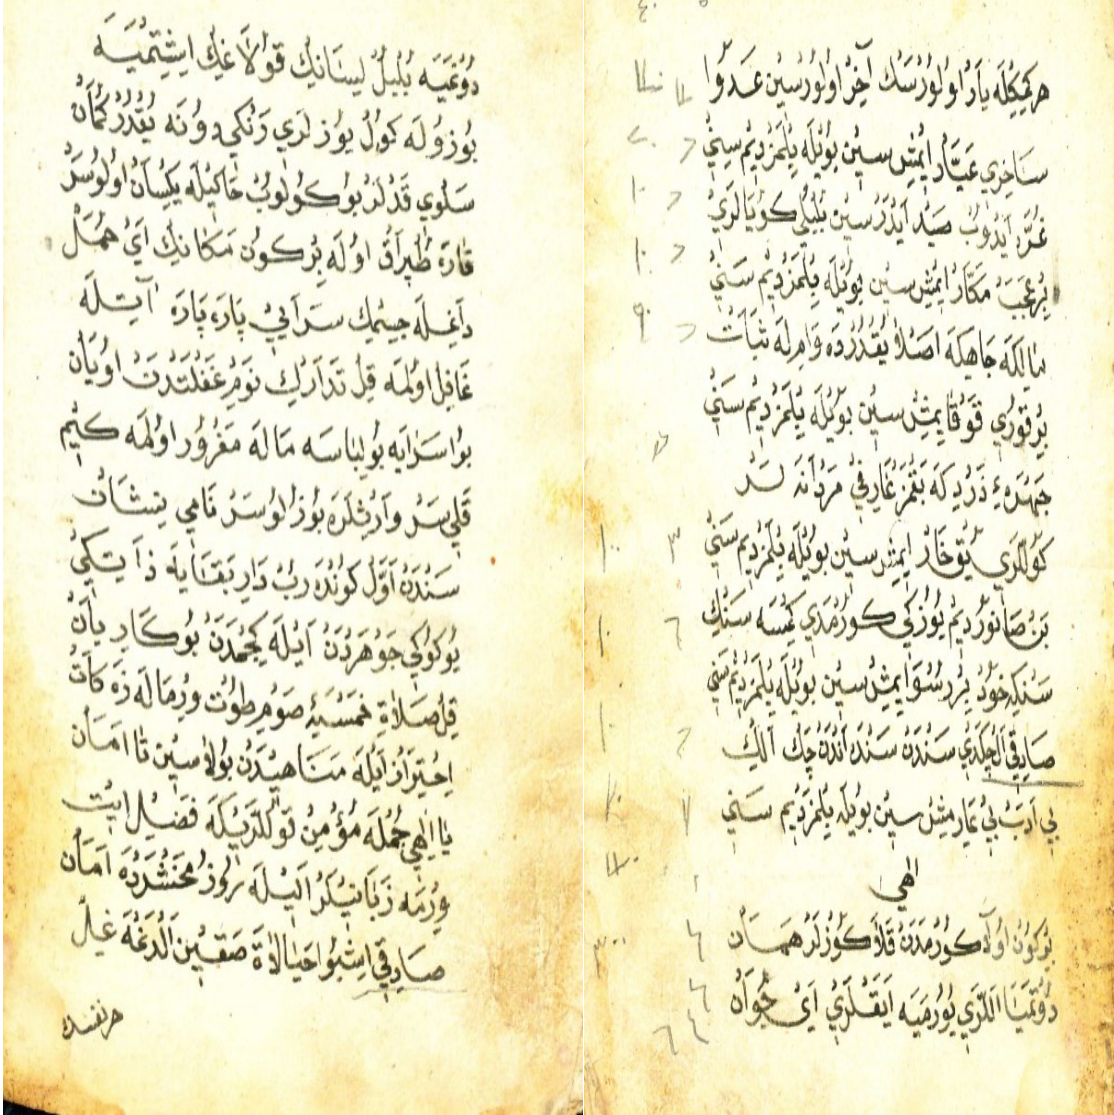 هر كيمكله يار اولورسك آخر اولورسين عدوا
ساخري عيار ايمش سين بويله بيلمز ديم سني
غره ايدوب صيد ايدرسين بلبلي كويالري
بر عجب مكار ايمش سين بويله بيلمز ديم سني
مالكه جاهكه اصلا يقدرده وارمله ثبات
بر قوري قوقايمش سين بويله بيلمز ديم سني
چهره ذردكه بقمز عارفي مردانه لر
كوللري يوق خار ايمش سين بويله بيلمز ديم سني
بن صانوردم يوزكي كورمدي كمسه سنك
سنكه خود بر رسوايمش سين بويله بيلمز ديم سني
صادقي الچلدي سندن سنده اندن چك الك
بي ادب بي عار مش سين بويله بيلمز ديم سني
الهي
بر كون اوله كورمدن قلا كوزلر همان
دوتميا اللري يورميه ايقلري اي جوان
دوغيه بلبل لسانك قولاغك اشتميه
بوزوله كول يوزلري رنكي دونه يقدر كمان
سلوي قدلر بوكولوب خاكيله يكسان اولوسر
قاره طپراق اوله بر كون مكانك اي حمل
داغله جسمك سرايي پاره پاره آتيله
غافل اولمه قل تدارك نوم غفلتدن اويان
بو سرايه بو لباسه ماله مغرور اولمه كيم
قلي سر وارثلره بوزلوسر نامي نشان
سندن اول كونده رب دار بقايه ذاتكي
بو كوكي جوهردن ايله كچمدن بو كار بان
قل صلاة خمسه صوم طوت وير ماله زكات
احتراز ايله مناهيدن بولاسين تا امان
يا الهي جمله مؤمن قوللريكه فضل ايت
ويرمه زبانيلر اليله روز محشرده امان
صادقي اشبو خيالاة صقين الدغه غل
هر نفسده